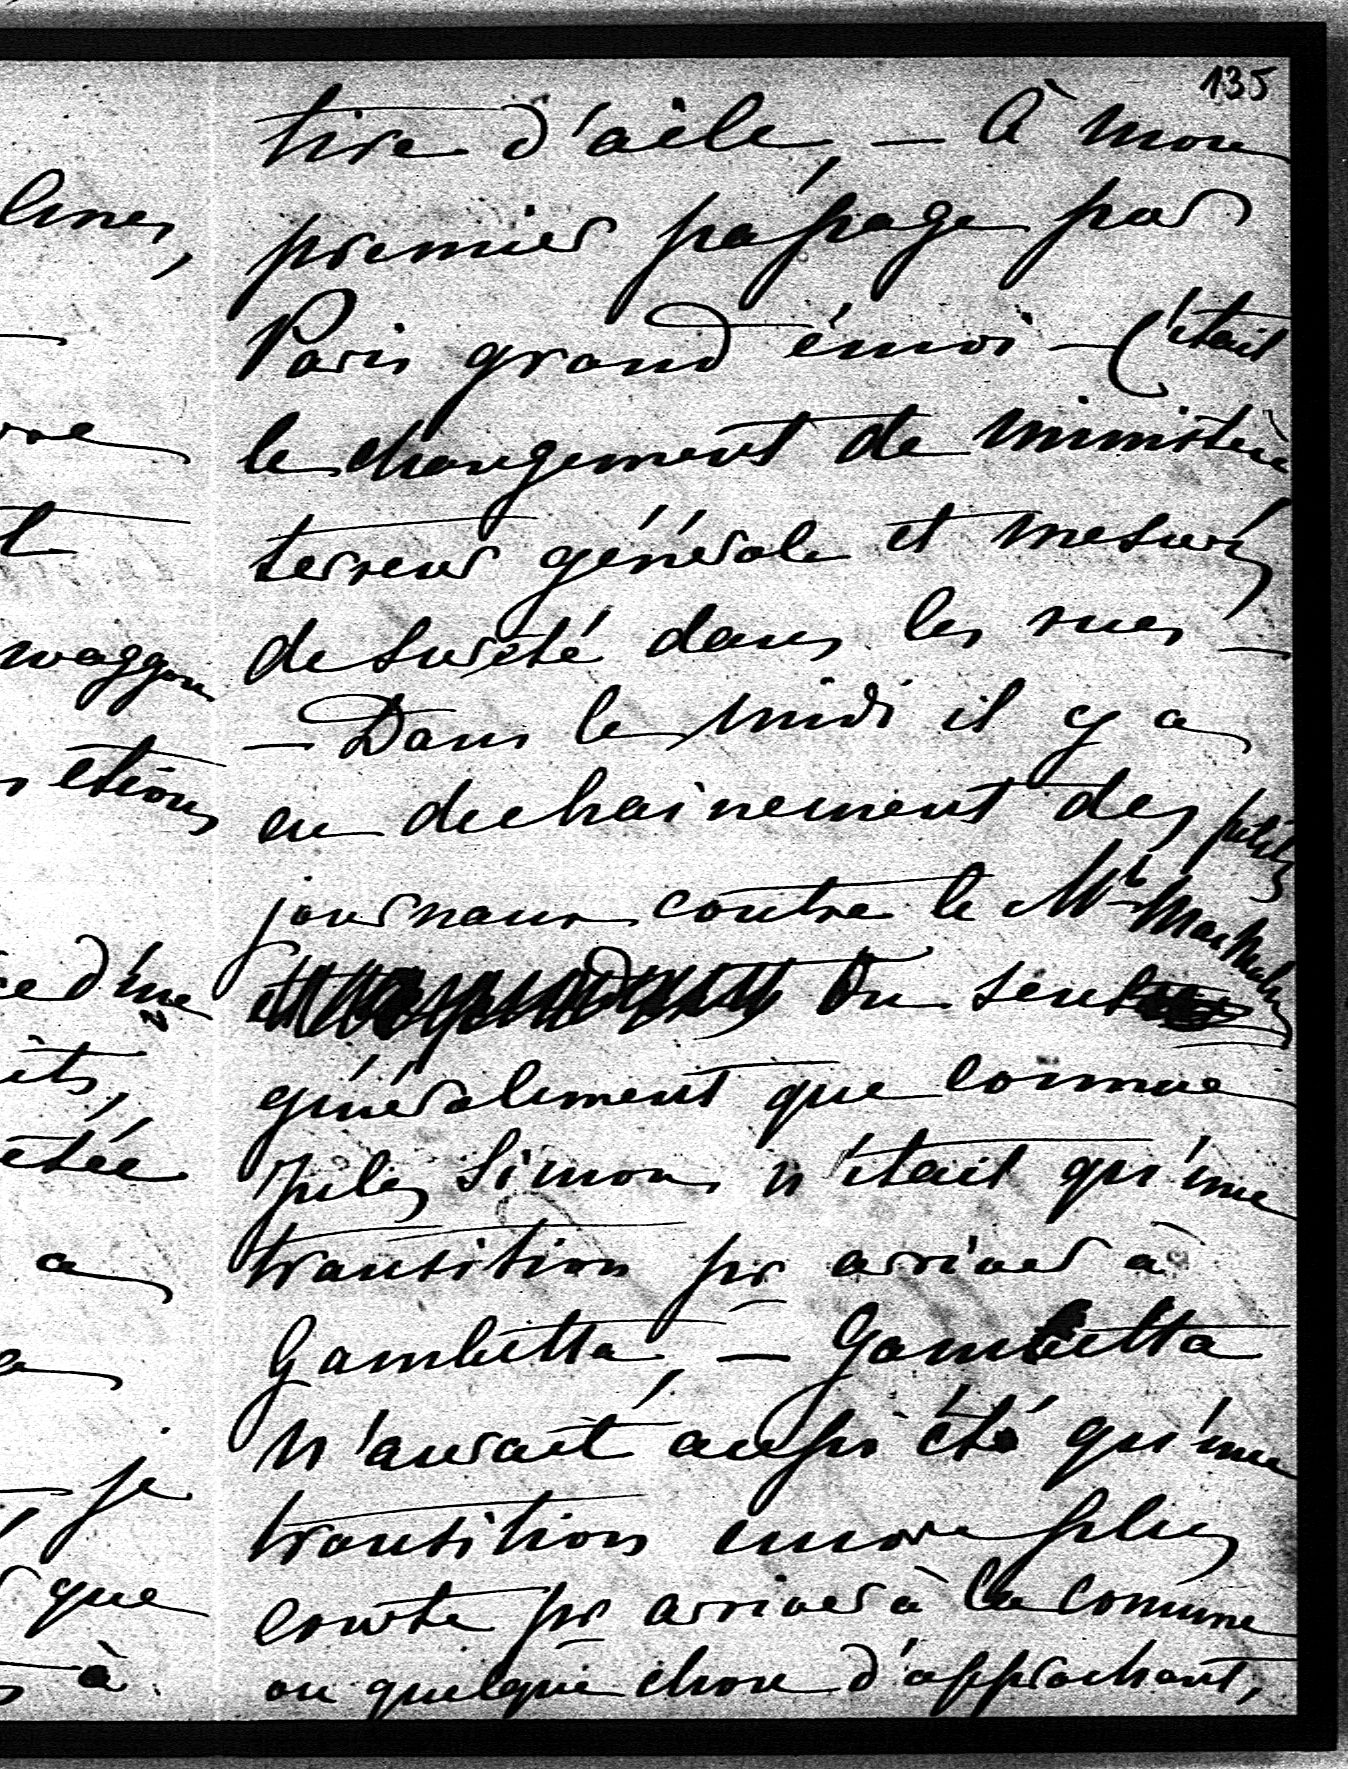 135
tire d'aile, — À mon
premier passage par
Paris grand émoi — C'était
le changement de ministère
terreur générale et mesures
de sureté dans les rues —
— Dans le midi il y a
eu dechainement des petits
journaux contre le Mal MacMahon
On sent
généralement que comme
Jules Simon n'était qu'une
transition pr arriver à
Gambetta, — Gambetta
n'aurait aussi été qu'une
transition encore plus
courte pr arriver à la Comune
ou quelque chose d'approchant,
lines,
waggon
etions
d'une
etée
a
je
que
à